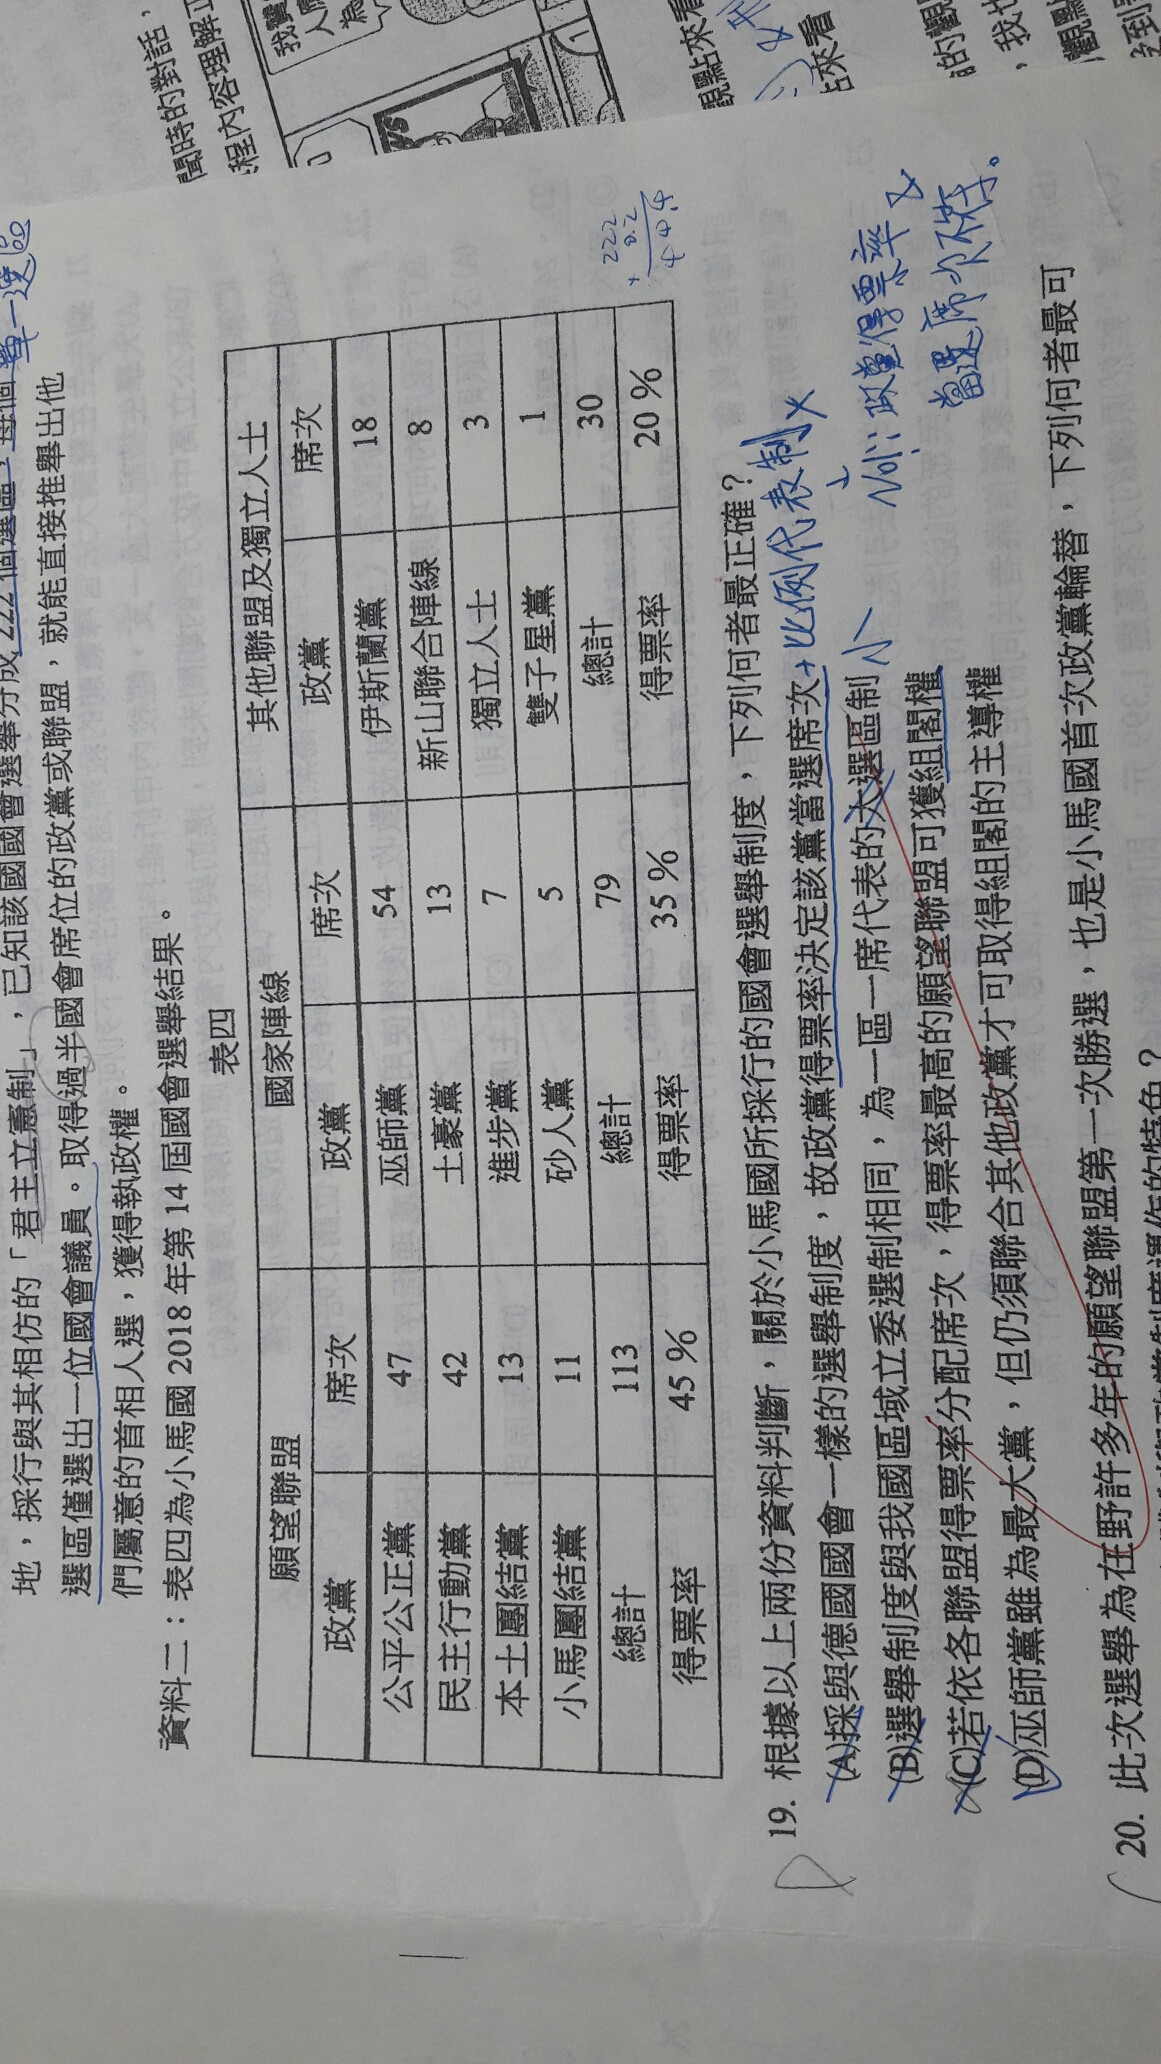 聞時的對話，
程內容理解正
我寶
人應
為
NS
觀點來看
占來看
的觀
，我也
觀點
至到
地，採行與其相仿的「君主立憲制」，已知該國國會選舉分成222個選區，每個
單一選區
選區僅選出一位國會議員。取得過半國會席位的政黨或聯盟，就能直接推舉出他
們屬意的首相人選，獲得執政權。
資料二：表四為小馬國2018年第14屆國會選舉結果。
表四
願望聯盟 國家陣線 其他聯盟及獨立人士
政黨 席次 政黨 席次 政黨 席次
公平公正黨 47 巫師黨 54 伊斯蘭黨 18
民主行動黨 42 土豪黨 13 新山聯合陣線 8
本土團結黨 13 進步黨 7 獨立人士 3
小馬團結黨 11 砂人黨 5 雙子星黨 1
總計 113 總計 79 總計 30
得票率 45% 得票率 35% 得票率 20%
222
0.2
444
D
19. 根據以上兩份資料判斷，關於小馬國所採行的國會選舉制度，下列何者最正確？
(A)採與德國國會一樣的選舉制度，故政黨得票率決定該黨當選席次
+比例代表制×
↓
No!：政黨得票率×
當選席次不符。
(B)選舉制度與我國區域立委選制相同，為一區一席代表的大選區制
小
(C)若依各聯盟得票率分配席次，得票率最高的願望聯盟可獲組閣權
(D)巫師黨雖為最大黨，但仍須聯合其他政黨才可取得組閣的主導權
20. 此次選舉為在野許多年的願望聯盟第一次勝選，也是小馬國首次政黨輪替，下列何者最可